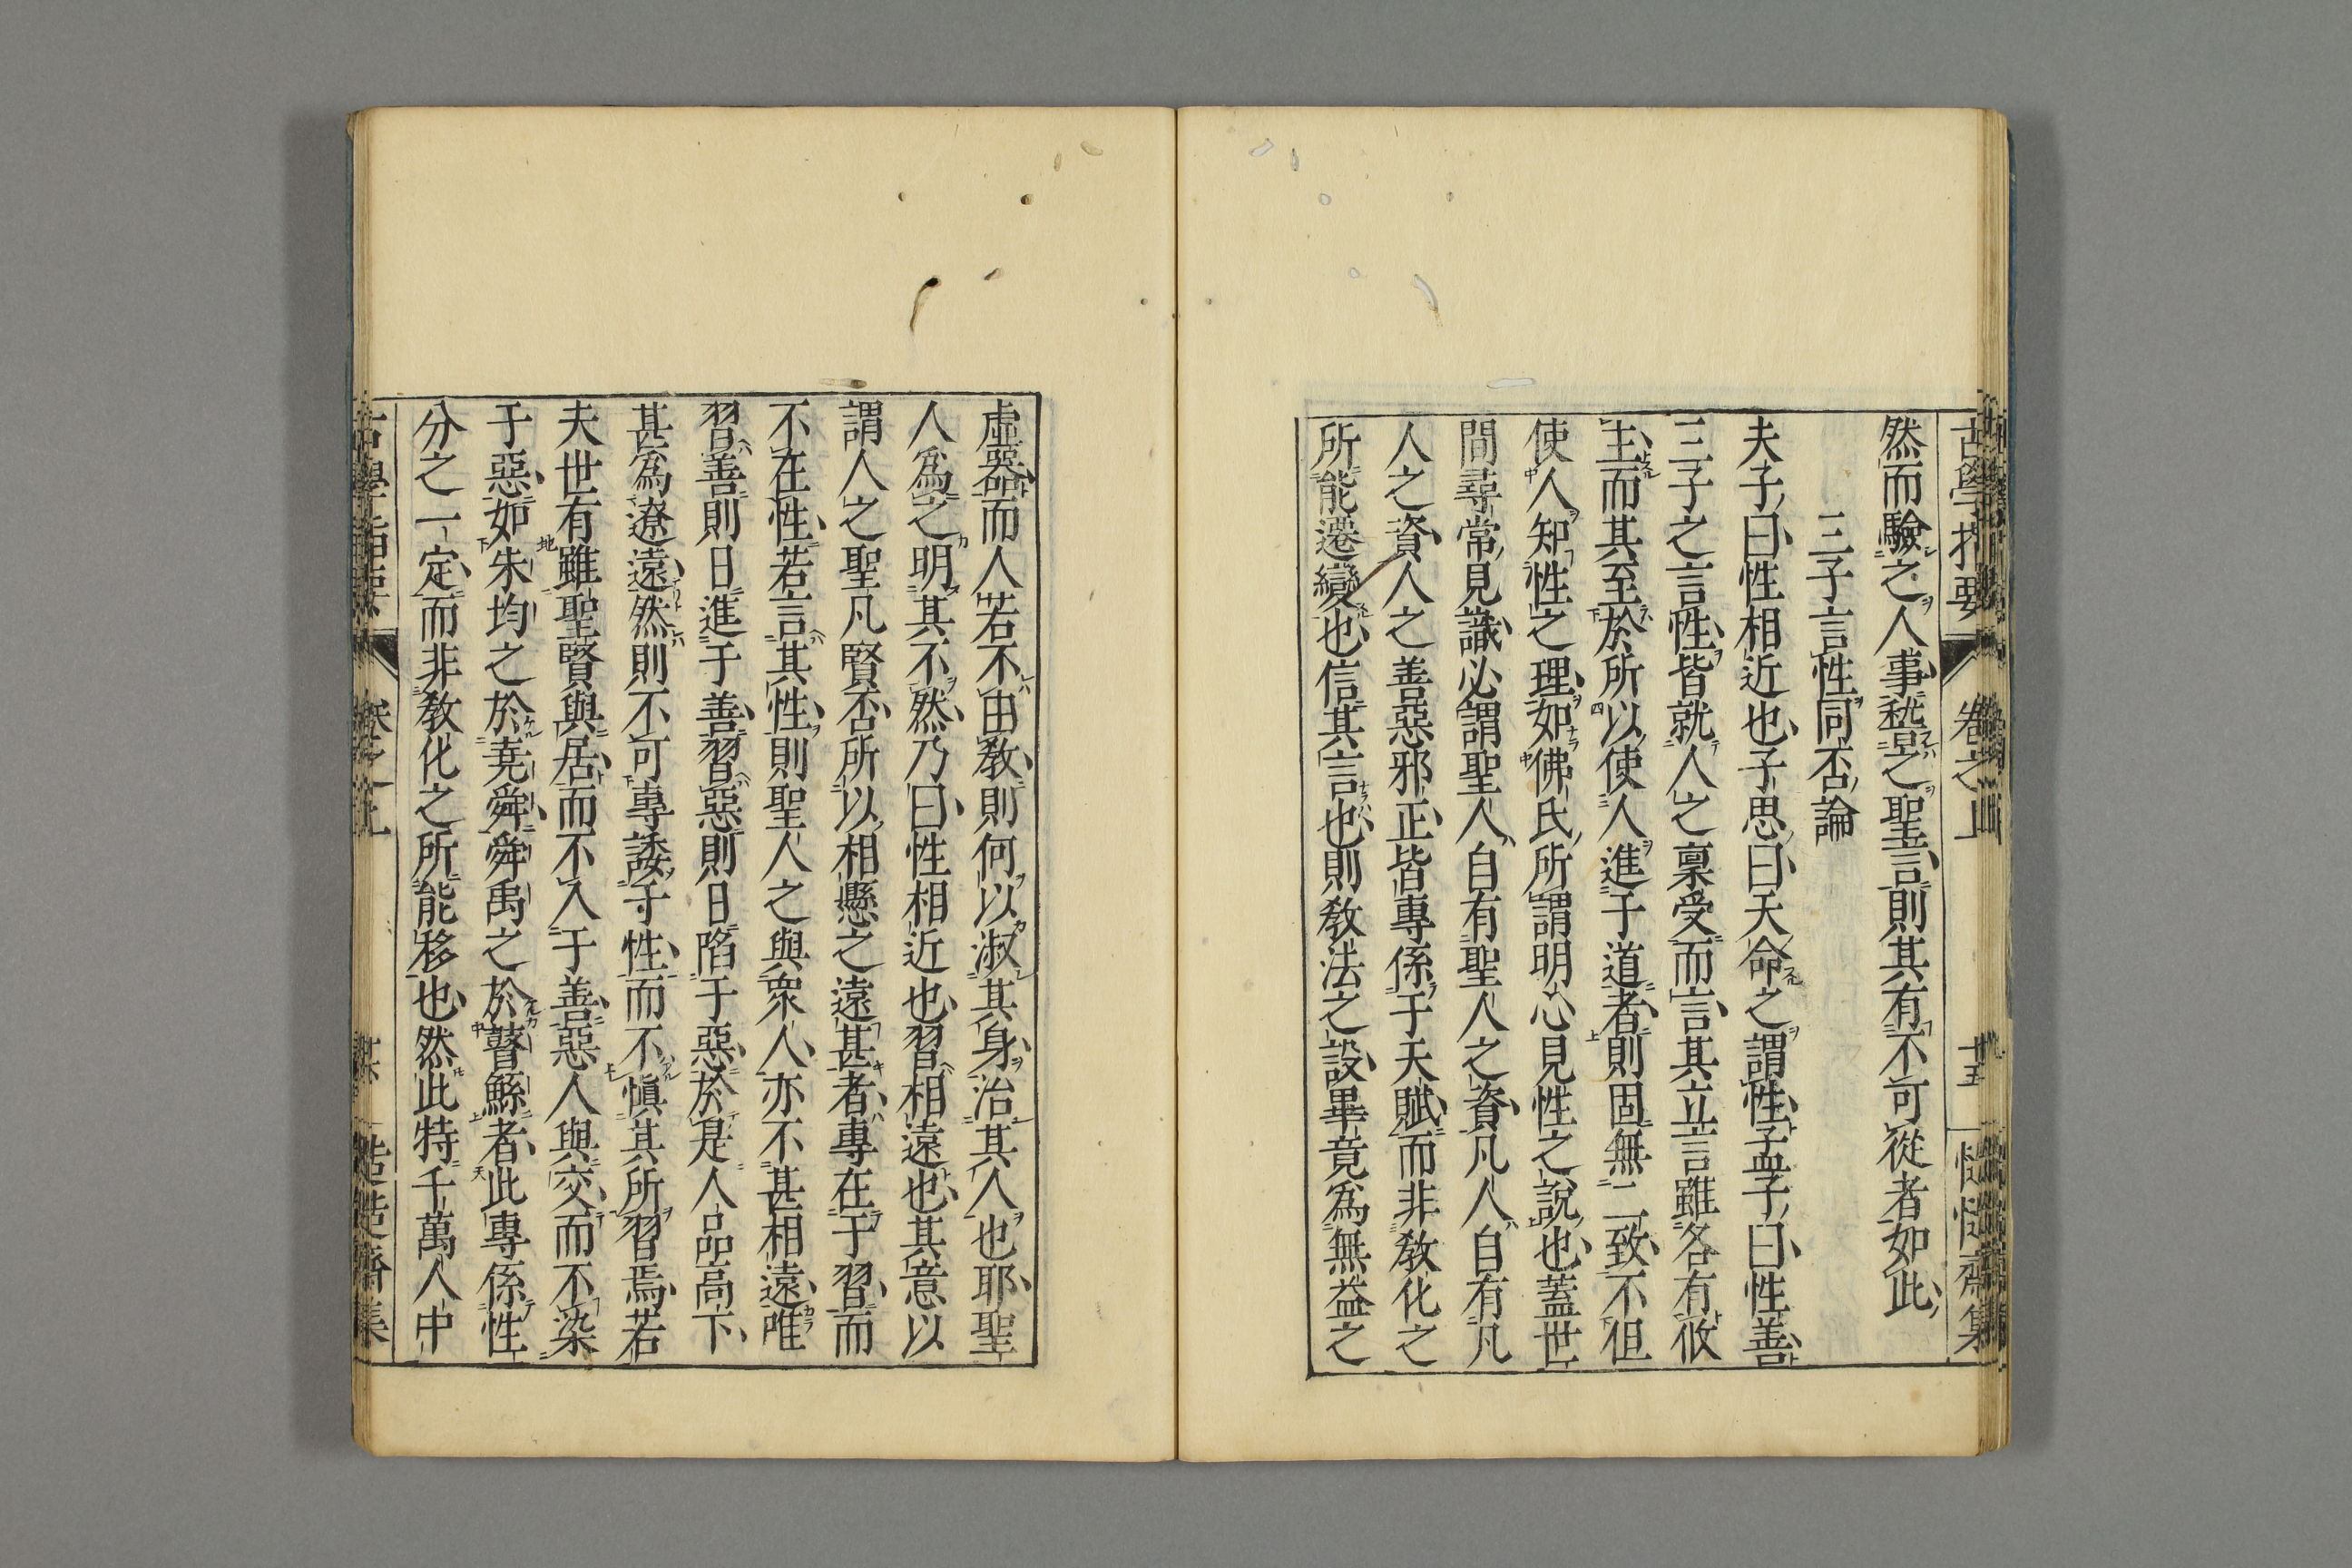 古學指要
卷之上
十五
慥慥齋集
然而驗之人事稽之聖言則其有不可從者如此
三子言性同否論
夫子曰性相近也子思曰天命之謂性孟子曰性善
三子之言性皆就人之稟受而言其立言雖各有攸
主而其至於所以使人進于道者則固無二致不但
使人知性之理如佛氏所謂明心見性之說也蓋世
間尋常見識必謂聖人自有聖人之資凡人自有凡
人之資人之善惡邪正皆專係于天賦而非教化之
所能遷變也信其言也則教法之設畢竟爲無益之
虛器而人若不由教則何以淑其身治其人也耶聖
人爲之明其不然乃曰性相近也習相遠也其意以
謂人之聖凡賢否所以相懸之遠甚者專在于習而
不在性若言其性則聖人之與衆人亦不甚相遠唯
習善則日進于善習惡則日陷于惡於是人品高下
甚爲遼遠然則不可專諉于性而不愼其所習焉若
夫世有雖聖賢與居而不入于善惡人與交而不染
于惡如朱均之於堯舜舜禹之於瞽鯀者此專係性
分之一定而非教化之所能移也然此特千萬人中
古學指要
卷之上
慥慥齋集